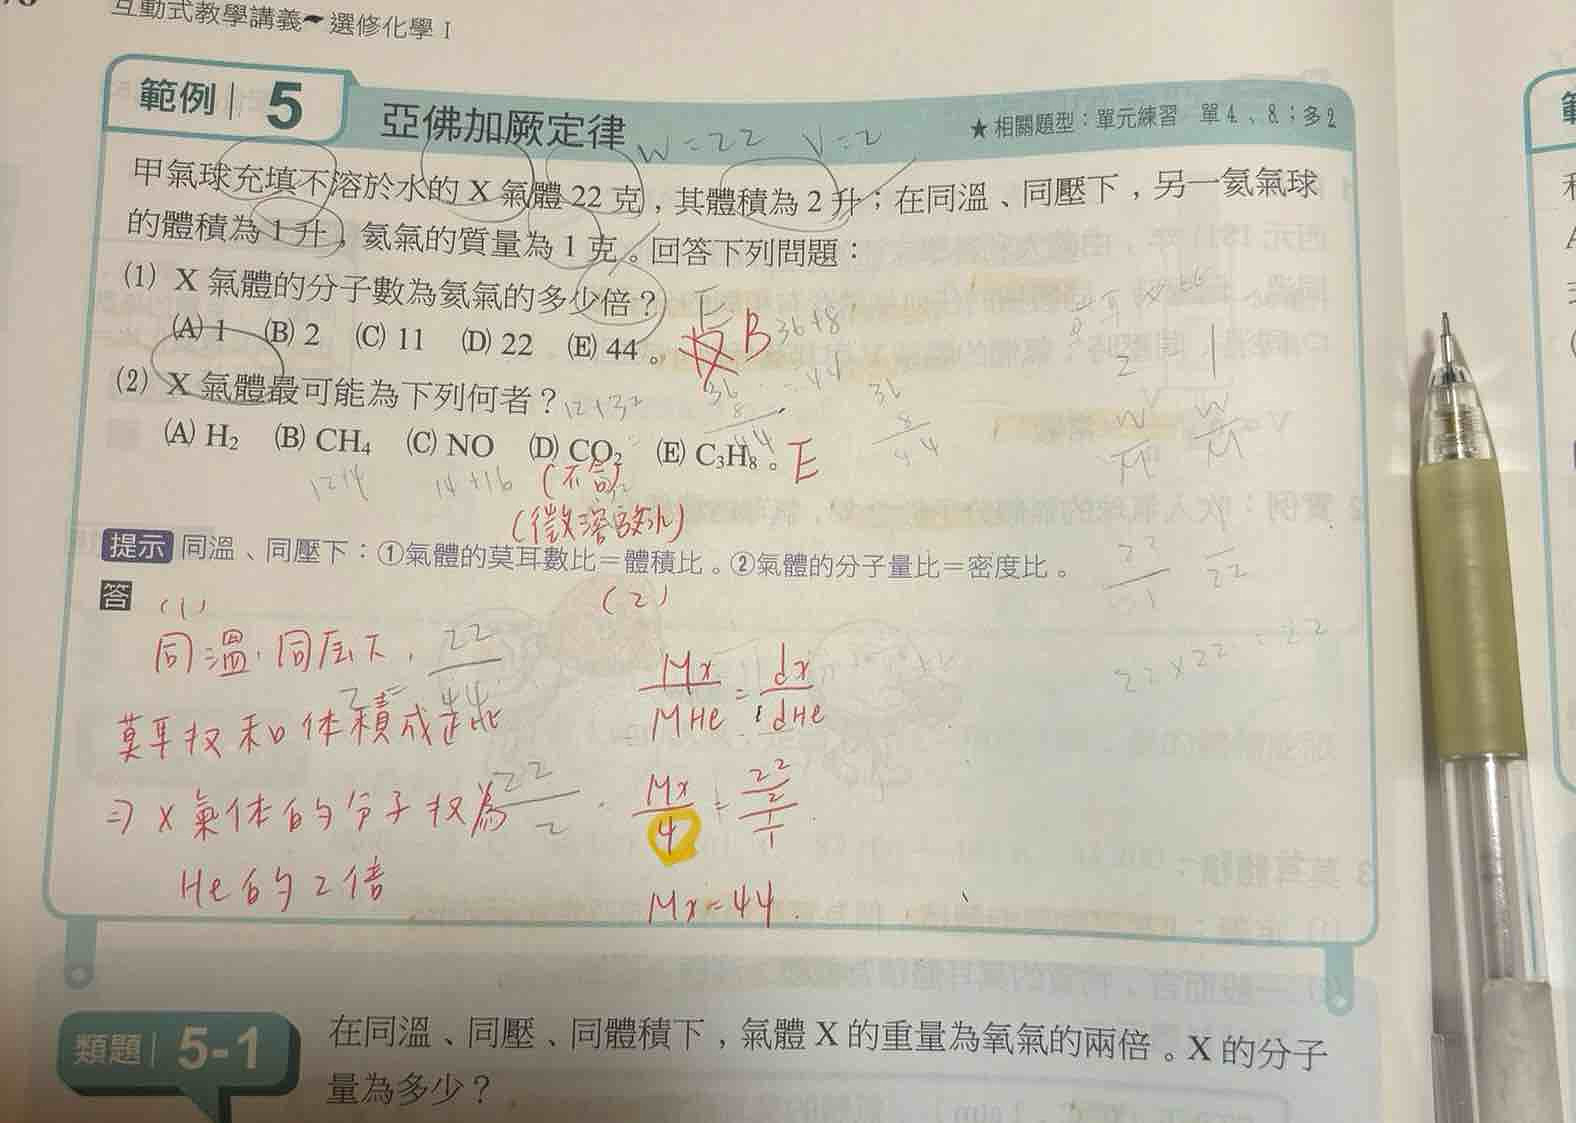 互動式教學講義 選修化學 I
範例 5 亞佛加厥定律
★相關題型：單元練習 單 4、8；多 2
W=22 V=2
甲氣球充填不溶於水的 X 氣體 22 克，其體積為 2 升；在同溫、同壓下，另一氦氣球
的體積為 1 升，氦氣的質量為 1 克。回答下列問題：
(1) X 氣體的分子數為氦氣的多少倍？
(A) 1 (B) 2 (C) 11 (D) 22 (E) 44。
B
36+8
=44
(2) X 氣體最可能為下列何者？
12+32
36
8
44
36
8
44
2 1
(A) H₂ (B) CH₄ (C) NO (D) CO₂ (E) C₃H₈。
E
12+4
14+16
(不合)
(微溶於水)
提示 同溫、同壓下：①氣體的莫耳數比＝體積比。②氣體的分子量比＝密度比。
答
(1)
同溫、同压下，
莫耳数和体積成正比
⇒ X 氣体的分子数為
He 的 2 倍
22
44
22
2
(2)
Mx/MHe = dx/dHe
Mx/4 = (22/2)/(1/1)
Mx=44.
22×22=22
類題 5-1 在同溫、同壓、同體積下，氣體 X 的重量為氧氣的兩倍。X 的分子
量為多少？